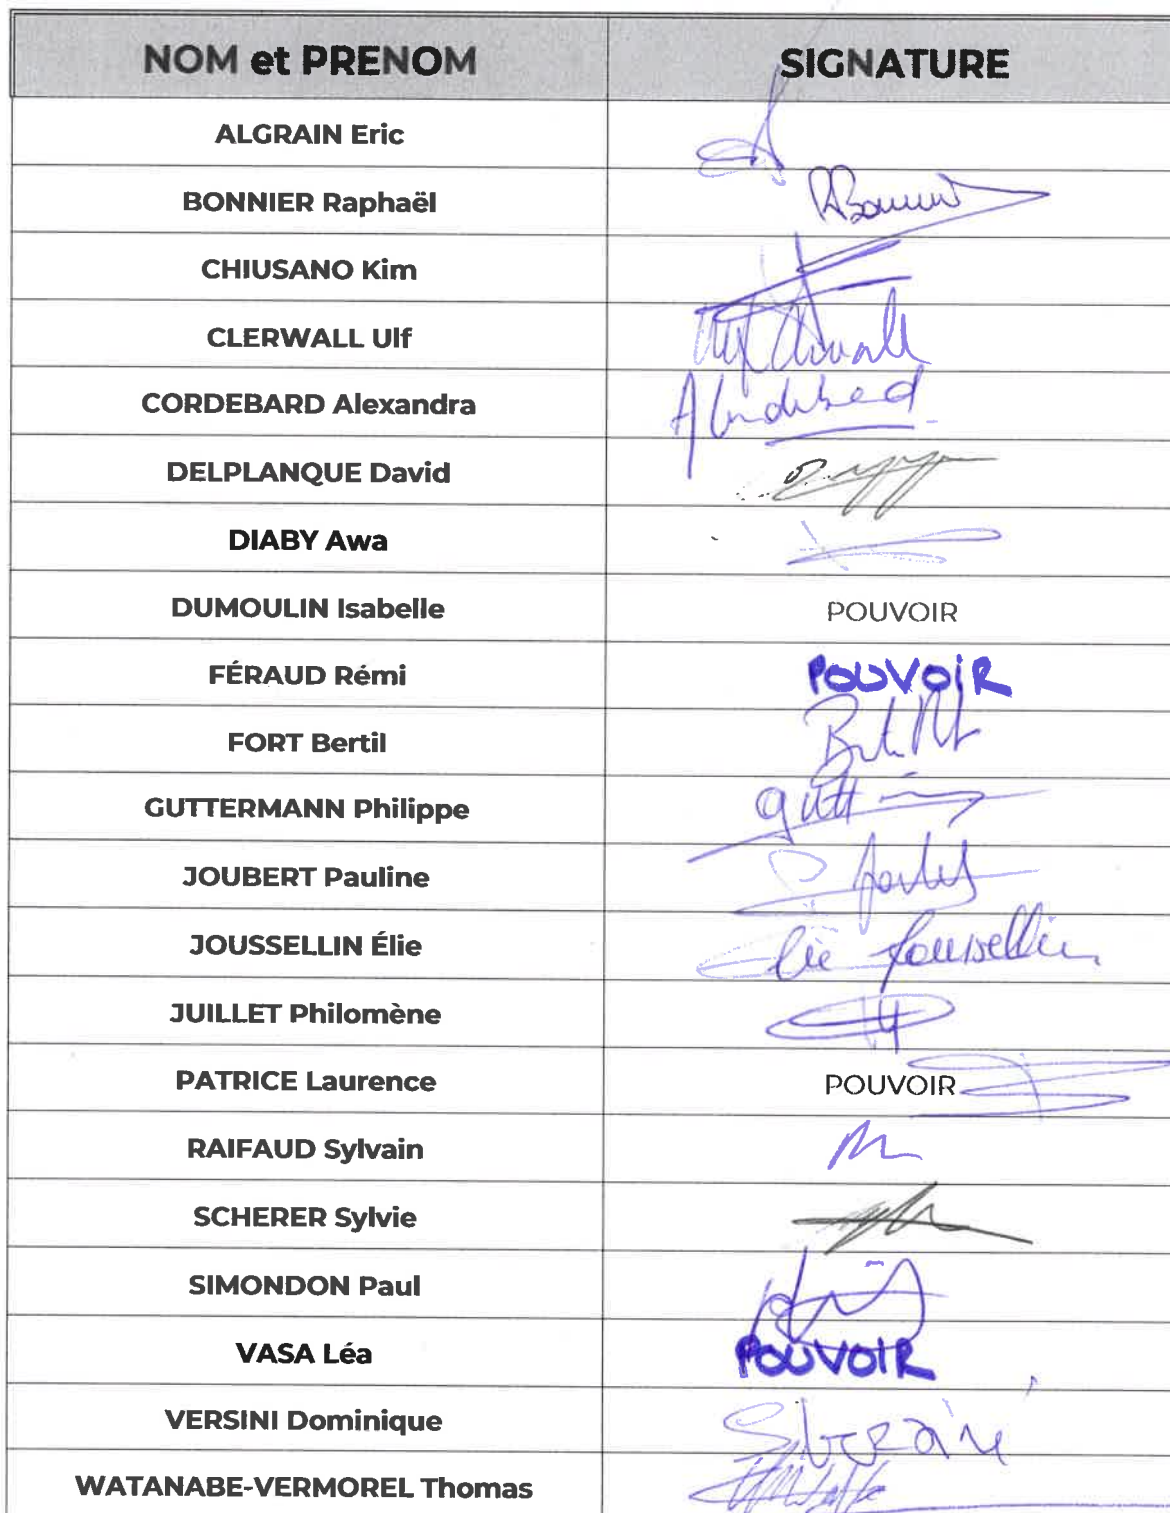 NOM et PRENOM SIGNATURE
ALGRAIN Eric
BONNIER Raphaël RBonnier
CHIUSANO Kim
CLERWALL Ulf Ulf Clerwall
CORDEBARD Alexandra ACordebard
DELPLANQUE David
DIABY Awa
DUMOULIN Isabelle POUVOIR
FÉRAUD Rémi POUVOIR
FORT Bertil
GUTTERMANN Philippe
JOUBERT Pauline
JOUSSELLIN Élie Élie Joussellin
JUILLET Philomène
PATRICE Laurence POUVOIR
RAIFAUD Sylvain
SCHERER Sylvie
SIMONDON Paul
VASA Léa POUVOIR
VERSINI Dominique
WATANABE-VERMOREL Thomas